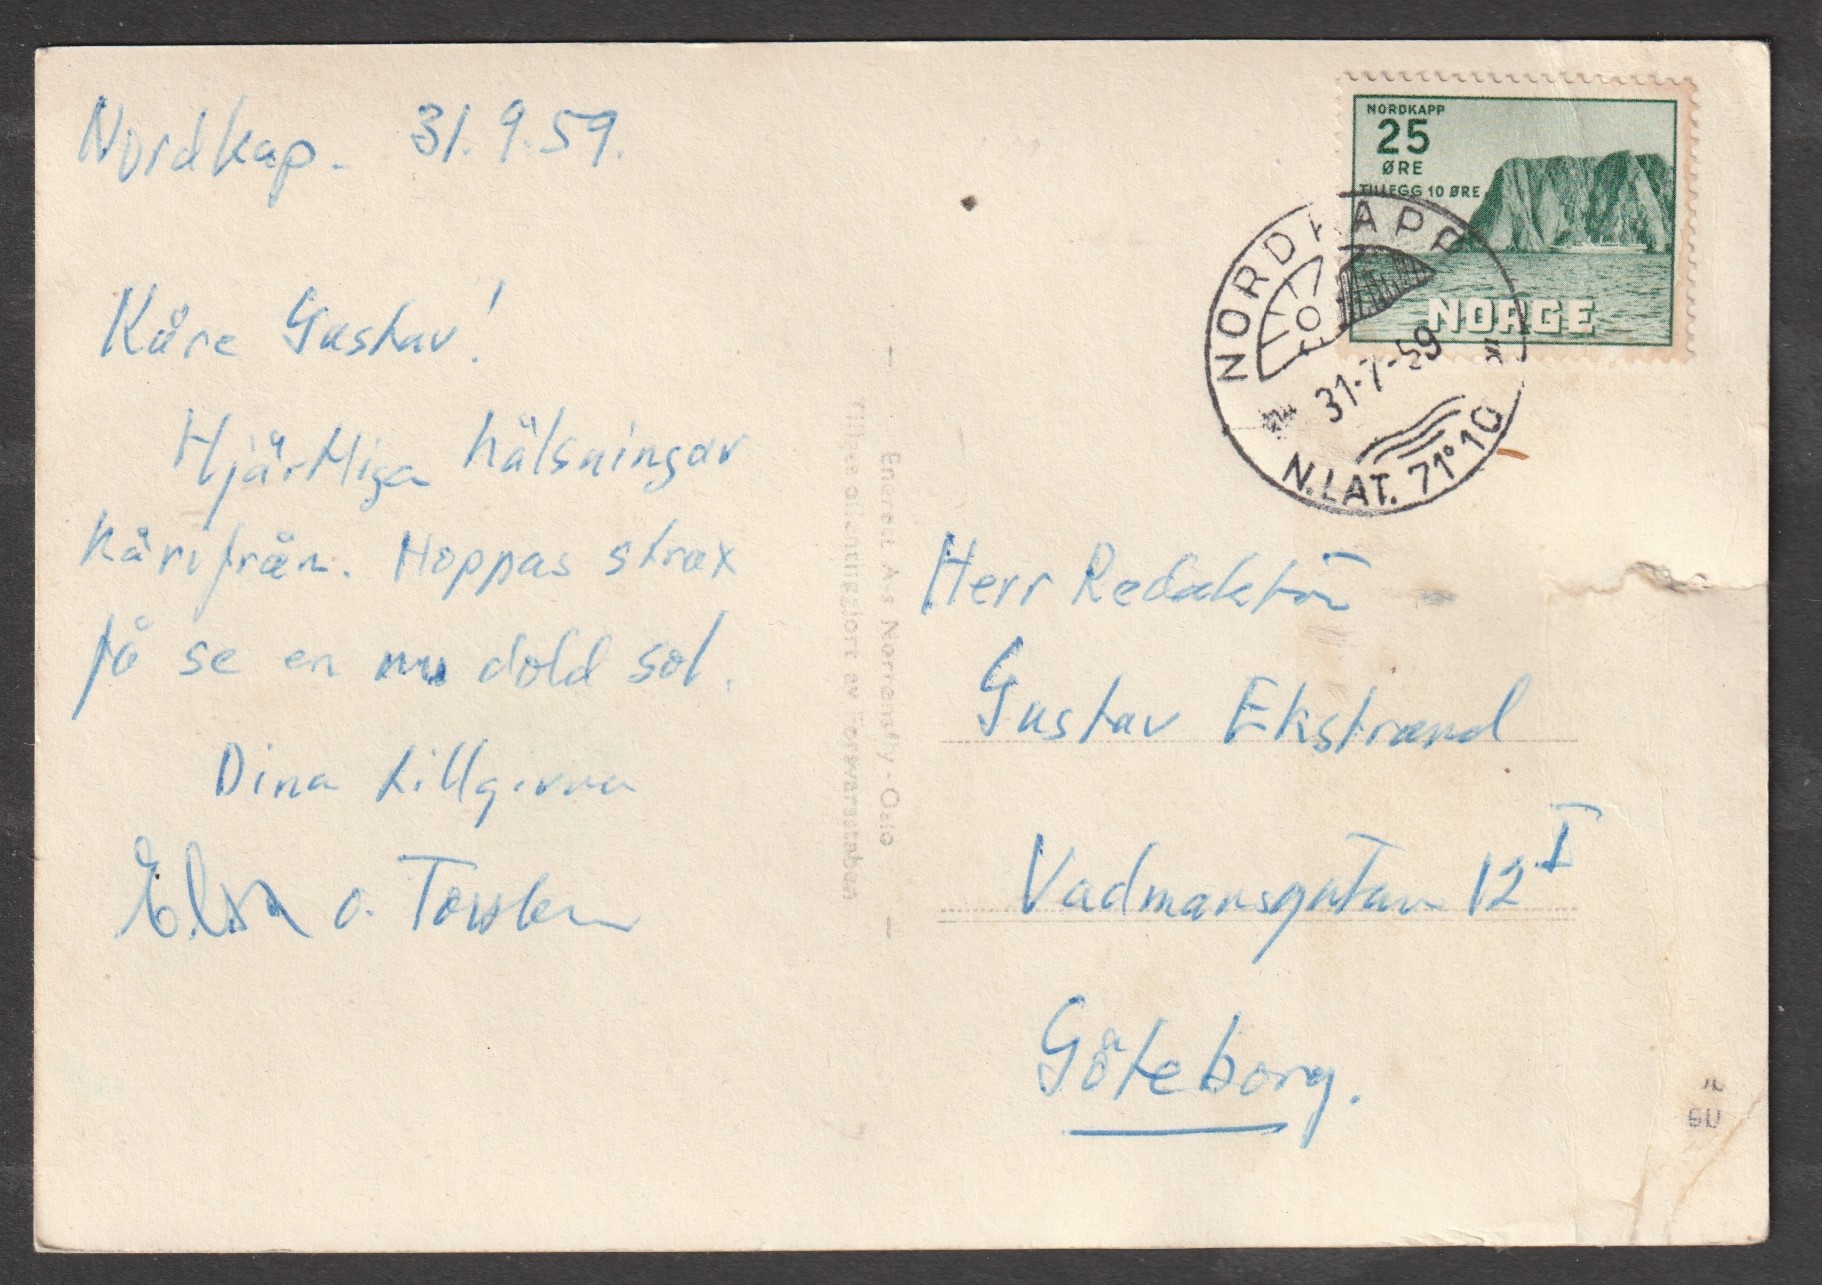 Nordkap. 31.9.59.
Käre Gustav!
Hjärtliga hälsningar
härifrån. Hoppas strax
få se en nu dold sol.
Dina tillgivna
Elsa o. Torsten
Enerett A/s Norrønafly - Oslo
Tillatt offentliggjort av Forsvarsstaben
NORDKAPP
25
ØRE
TILLEGG 10 ØRE
NORGE
NORDKAPP
31-7-59
N.LAT. 71°10
Herr Redaktör
Gustav Ekstrand
Vadmansgatan 12 I
Göteborg.